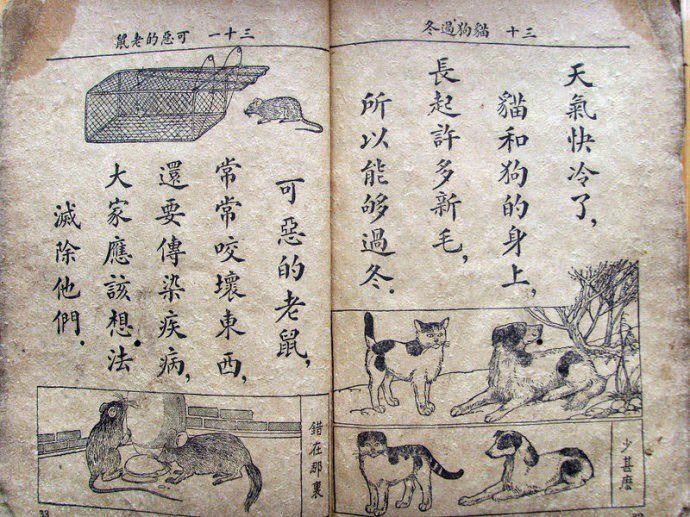 三十 貓狗過冬
天氣快冷了,
貓和狗的身上,
長起許多新毛,
所以能够過冬.
少甚麼
三十一 可惡的老鼠
可惡的老鼠,
常常咬壞東西,
還要傳染疾病,
大家應該想法
滅除他們.
錯在那裏